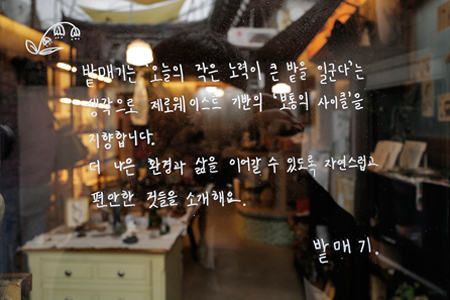 밭매기는 '오늘의 작은 노력이 큰 밭을 일군다'는
생각으로 제로웨이스트 기반의 '보통의 사이클'을
지향합니다.
더 나은 환경과 삶을 이어갈 수 있도록 자연스럽고
편안한 것들을 소개해요.
밭매기.